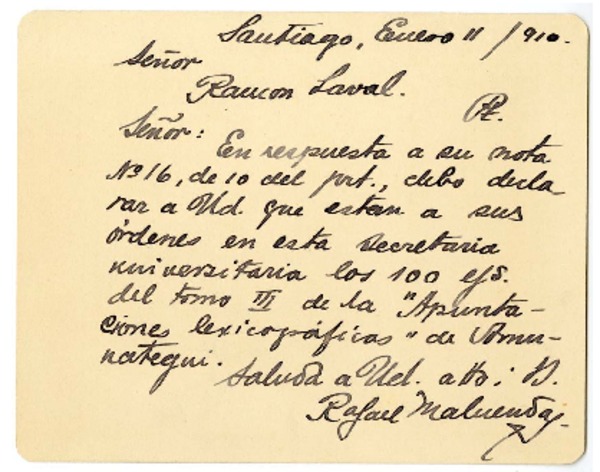 Santiago, Enero 11 / 910.
Señor
Ramon Laval.
Pte.
Señor:
En respuesta a su nota
Nº 16, de 10 del prt., debo decla
rar a Ud. que estan a sus
órdenes en esta secretaria
universitaria los 100 ejs.
del tomo III de la "Apunta-
ciones lexicográficas" de Amu-
nategui.
Saluda a Ud. atto. i S.
Rafael Maluenda